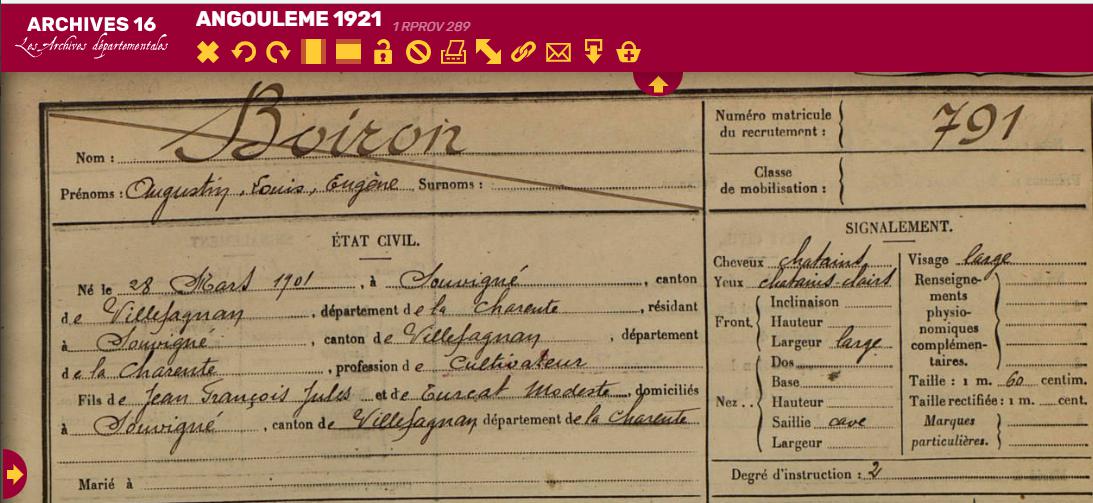 ARCHIVES 16
Les Archives départementales
ANGOULEME 1921 1 RPROV 289
Nom : Boiron
Prénoms : Augustin, Louis, Eugène Surnoms :
Numéro matricule du recrutement : 791
Classe de mobilisation :
ÉTAT CIVIL.
Né le 28 Mars 1901, à Souvigné, canton
de Villefagnan, département de la Charente, résidant
à Souvigné, canton de Villefagnan, département
de la Charente, profession de Cultivateur
Fils de Jean François Jules et de Turcat Modeste, domiciliés
à Souvigné, canton de Villefagnan département de la Charente
Marié à
SIGNALEMENT.
Cheveux chatains
Yeux chatains-clairs
Front
Inclinaison
Hauteur
Largeur large
Nez..
Dos
Base
Hauteur
Saillie cave
Largeur
Visage large
Renseigne-
ments
physio-
nomiques
complémen-
taires.
Taille : 1 m. 60 centim.
Taille rectifiée : 1 m. cent.
Marques
particulières.
Degré d'instruction : 2